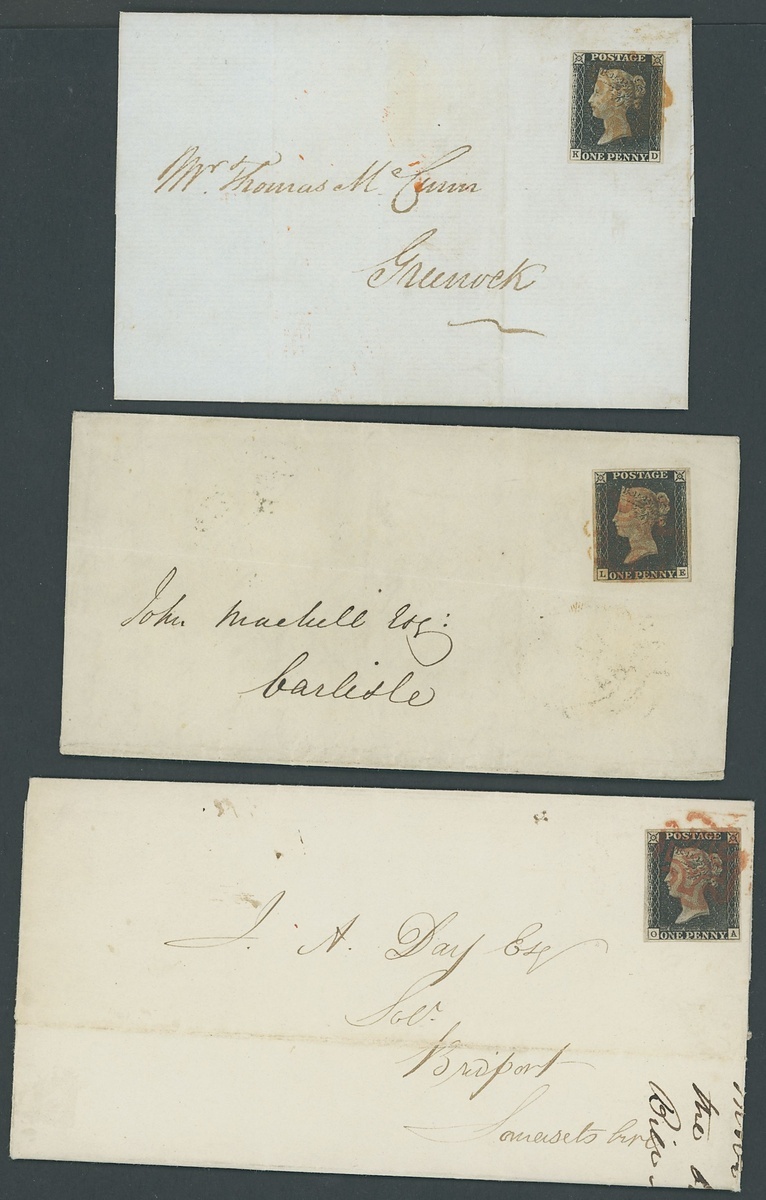 POSTAGE
K ONE PENNY D
Mr. Thomas Mc Cunn
Greenock
POSTAGE
L ONE PENNY E
John Machell Esq:
Carlisle
POSTAGE
O ONE PENNY A
J. A. Day Esq
Solr.
Bridport
Somersetshire
the